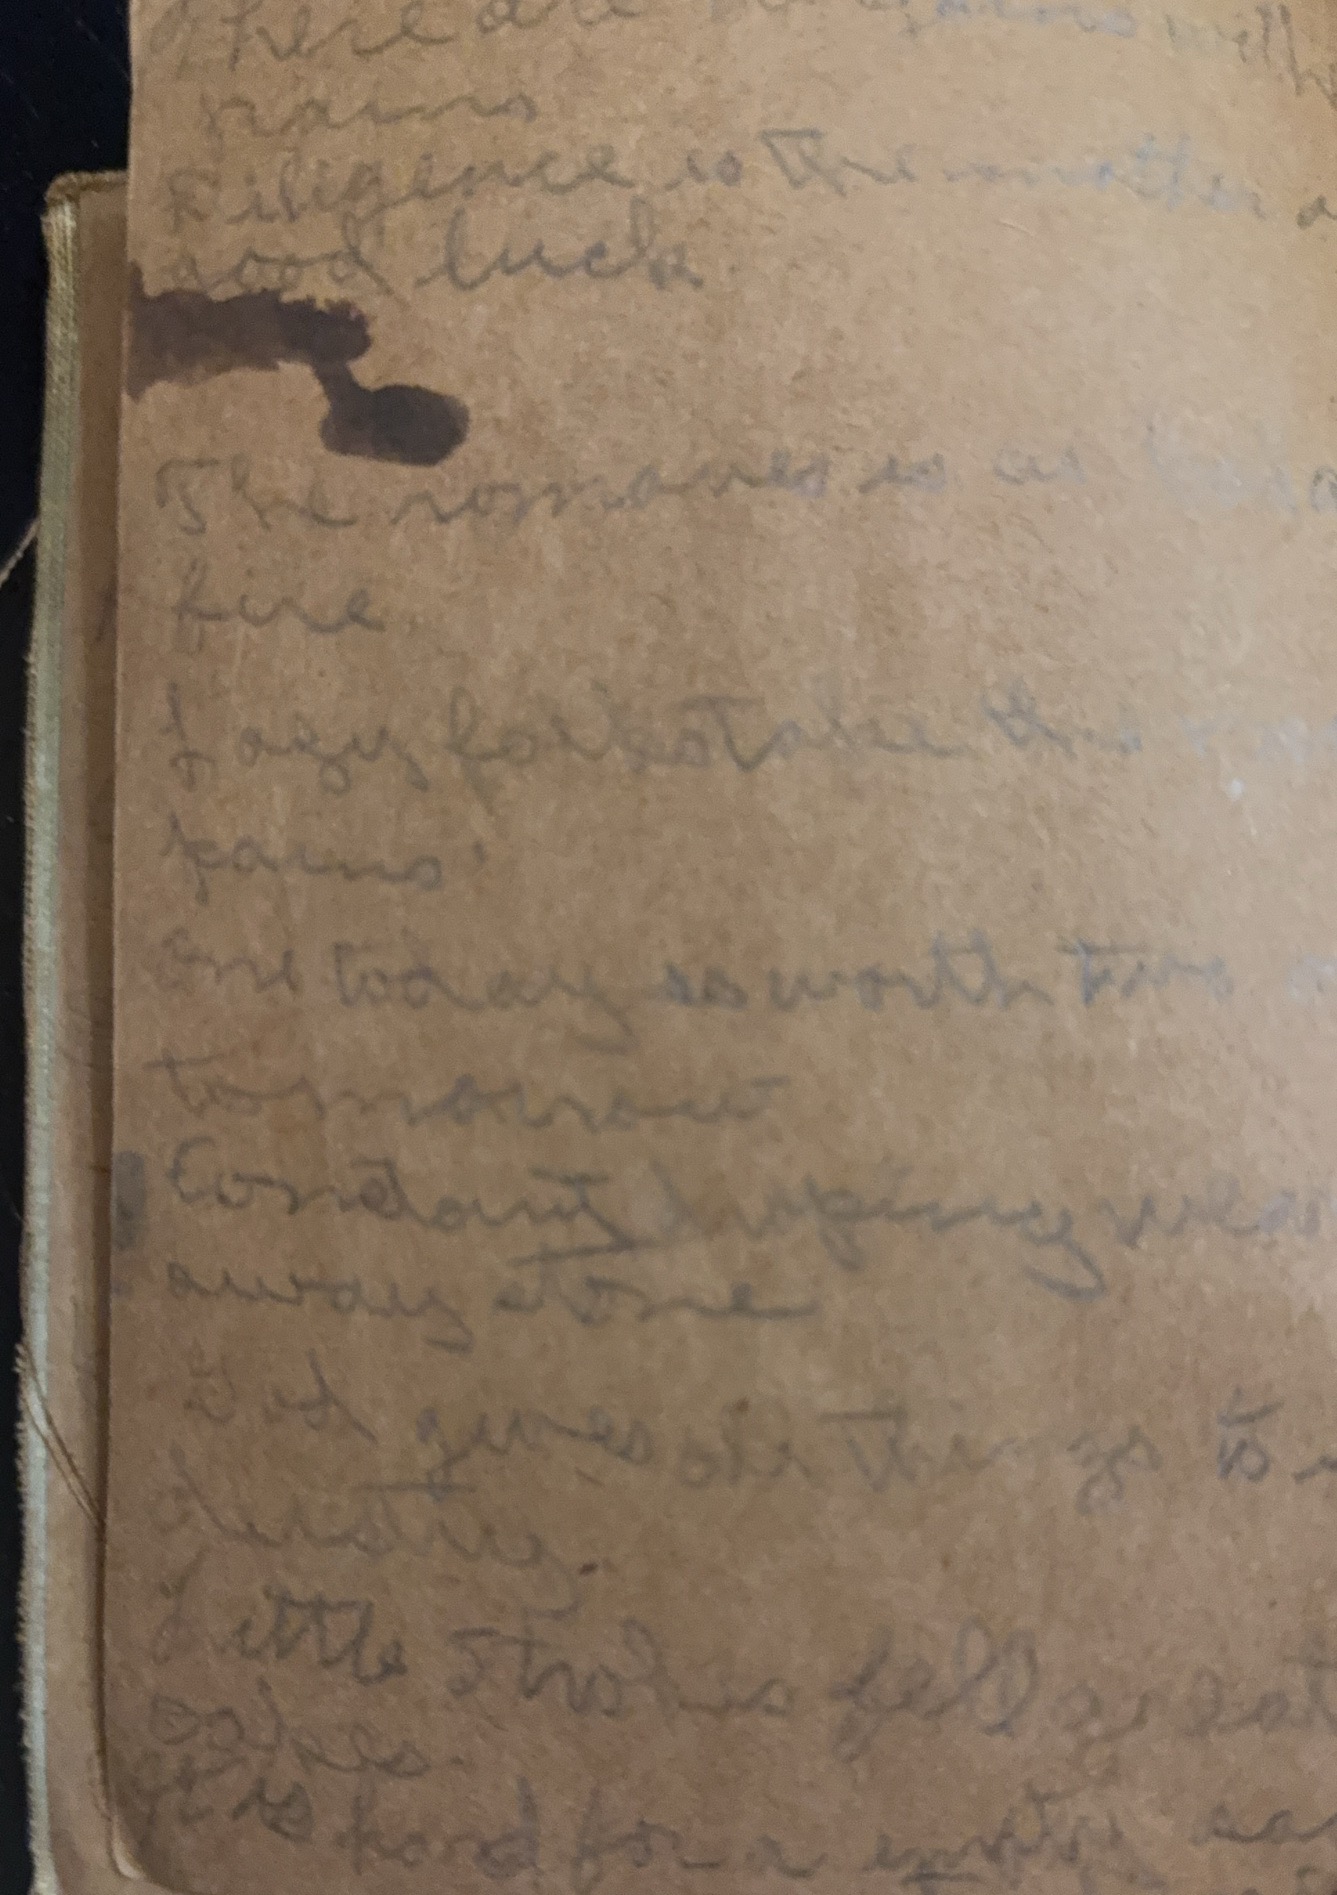 There are no gains with
pains
Diligence is the mother
good luck
The removes is as
fire
Lazy folks take the
pains
One today is worth two
tomorrow
Constant droping wears
away stone
God gives all things to
dustry.
Little strokes fell great
oakes.
It is hard for a empty